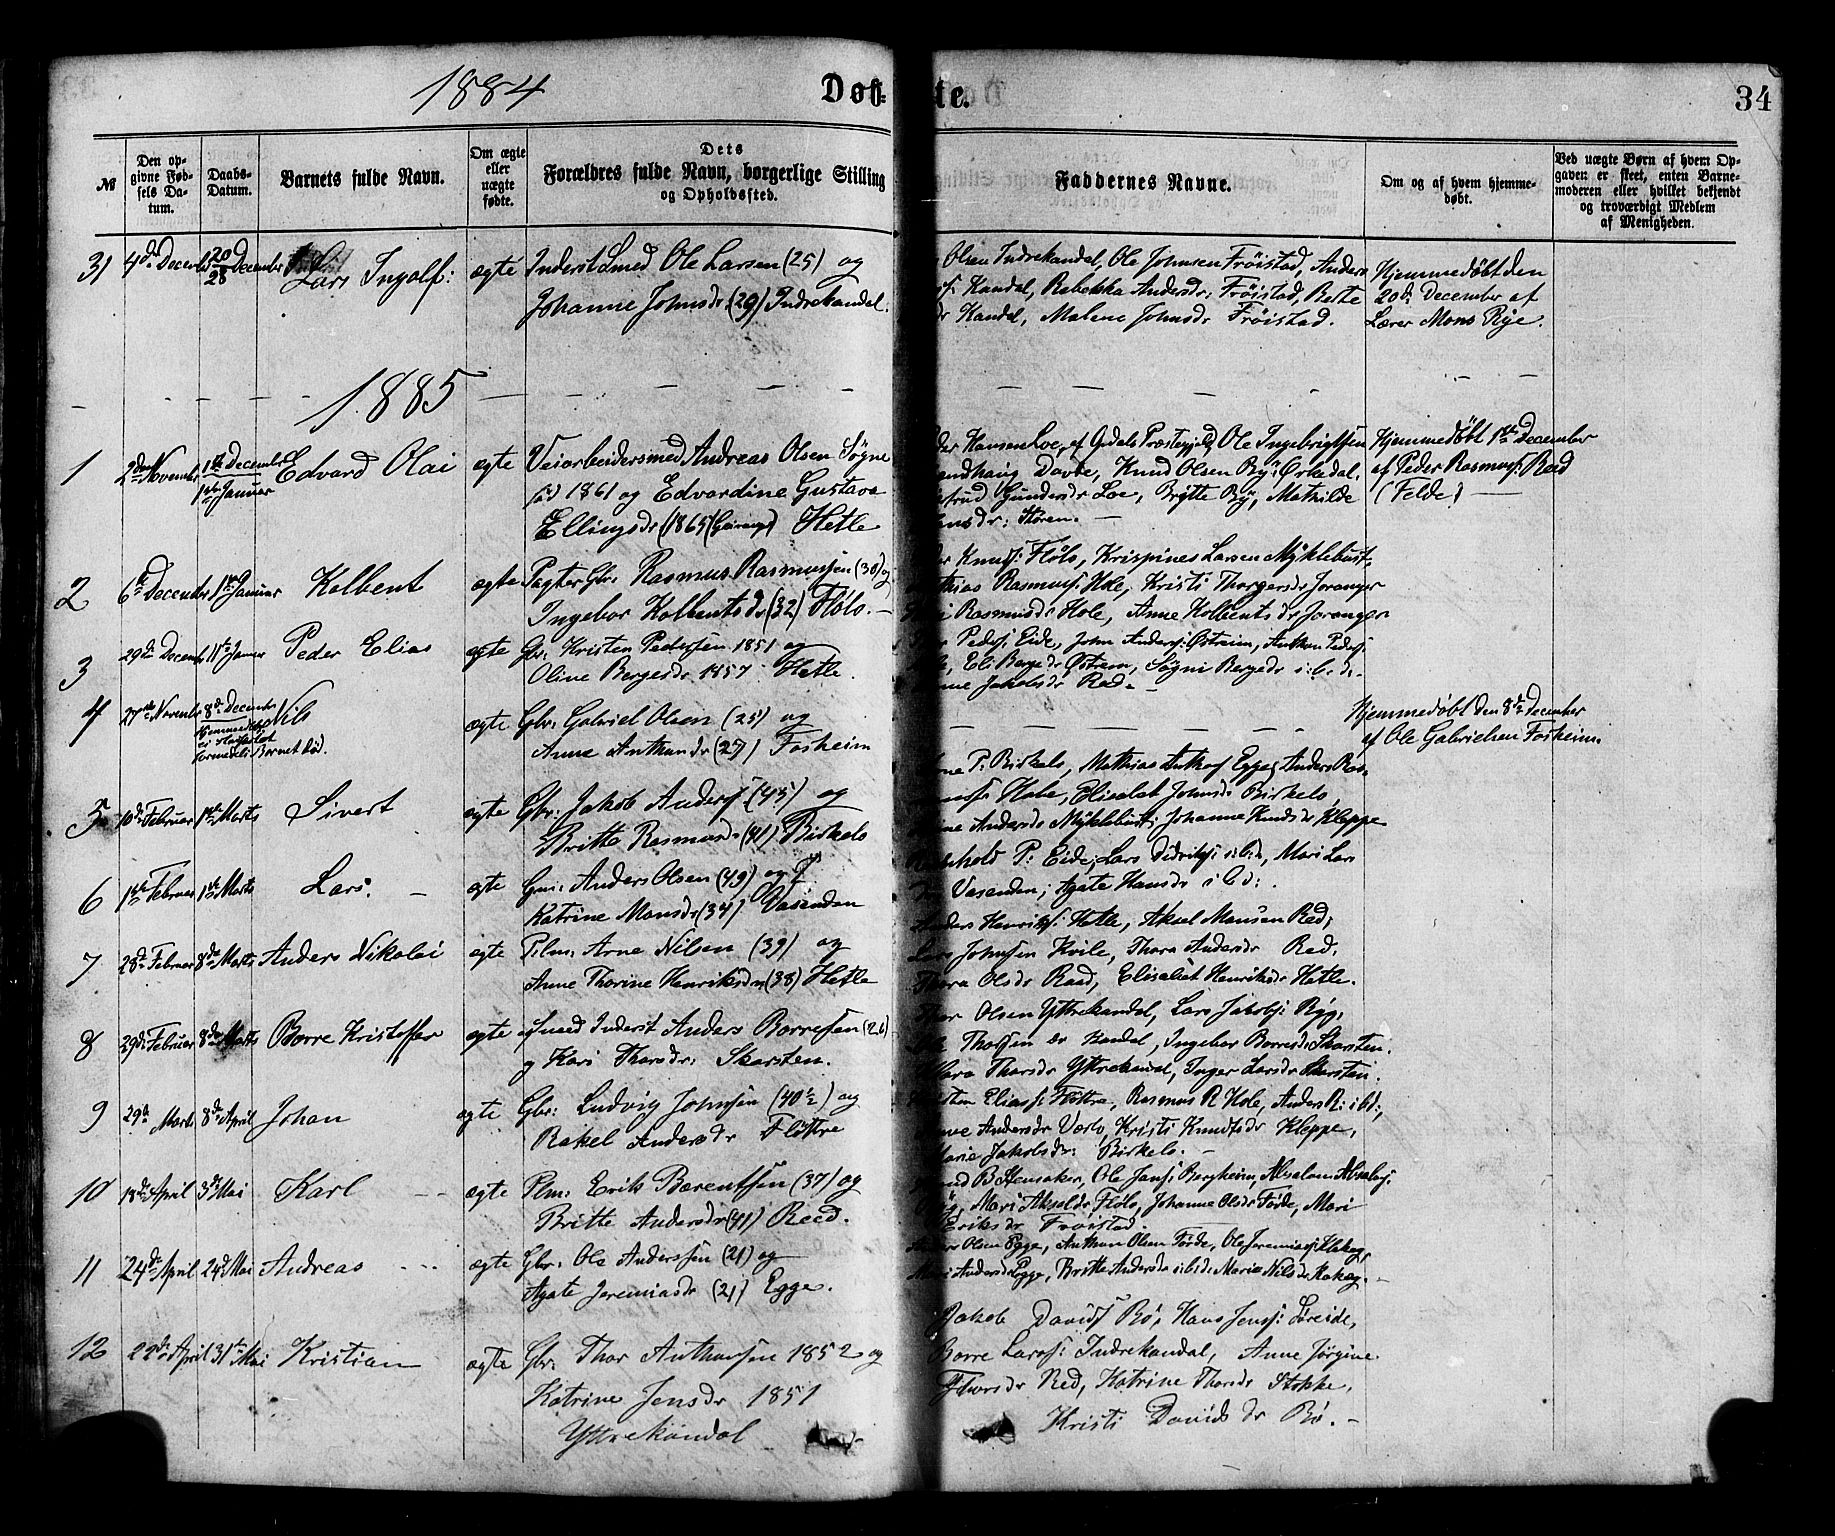 1884
Døbte.
34
№
Den opgivne Fødsels Datum.
Daabs-Datum.
Barnets fulde Navn.
Om ægte eller uægte fødte.
Dets Forældres fulde Navn, borgerlige Stilling og Opholdssted.
Faddernes Navne.
Om og af hvem hjemmedøbt.
Ved uægte Børn af hvem Opgaven er skeet, enten Barnemoderen eller hvilket bekjendt og troværdigt Medlem af Menigheden.
31 4de December 20/28 December Lars Ingolf: ægte Inderst Smed Ole Larsen (25) og
Johanne Johnsdr. (29) Indrekandal.
Olsen Indrekandal, Ole Johnsen Frøistad, Anders
Kandal, Rabekka Andersdr. Frøistad, Berte
Kandal, Malene Johnsdr Frøistad.
Hjemmedøbt den
20de December af
Lærer Mons Rye.
1885
1 2den November 1ste December 1ste Januar Edvard Olai ægte Veiarbeidersmed Andreas Olsen Søgne
1861 og Edvardine Gustava
Ellingsdr (1865) (Geiranger) Hetle
Hansen Loe, af Opdals Præstegjeld, Ole Ingebrigtsen
Dovre, Knud Olsen Bys Orkedal,
Gundersdr Loe, Brytte By, Mathilde
Støren. —
Hjemmedøbt 1ste December
af Peder Rasmus: Reed
(Felde) —
2 6te December 1ste Januar Kolbent ægte Pagter Gbr: Rasmus Rasmussen (30) og
Ingebor Kolbentsdr (32) Fløla. —
Knuds: Fløla, Krispines Larsen Myklebust
Rasmuss: Hole, Kristi Thorgersdr Joranger
Rasmusdr Hole, Anne Kolbentsdr Joranger
3 29de December 11te Januar Peder Elias ægte Gbr: Kristen Pedersen 1851 og
Oline Bergesdr 1857 Hetle.
Peders: Eide, John Anders: Østreim, Anthon Peders:
Eli Bergesdr Østrem, Søgni Bergesdr i.b.d.
Jakobsdr Red. —
4 27de November 8de December Nils
Hjemmedøbt
Barnet død.
ægte Gbr: Gabriel Olsen (25) og
Anne Anthunsdr (27) Fosheim
Hjemmedøbt den 8de December
af Ole Gabrielsen Fosheim.
5 10de Februar 1ste Marts Sivert ægte Gbr: Jakob Anders: (45) og
Britte Rasmusdr (41) Birkelo
P. Birkelo, Mathias Anth: Egge, Anders Ras-
Hole, Elisabet Johnsdr Birkelo,
Andersdr Myklebust, Johanne Knudsdr Kleppe
6 1ste Februar 1ste Marts Lars. — ægte Gm: Anders Olsen (49) og
Katrine Monsdr (34) Vasenden
P: Eide, Lars Didriks: i.b.d, Mari Lars
Vasenden, Agate Hansdr i.b.d:
7 28de Februar 8de Marts Anders Nikolai ægte Plm: Arne Nilsen (39) og
Anne Thorine Henriksdr (38) Hetle
Anders Henriks: Hetle, Aksel Monsen Red,
Lars Johnsen Kvile, Thora Andersdr Red,
Thora Olsdr Raad, Elisabet Henriksdr Hetle.
8 29de Februar 8de Marts Børre Kristoffer ægte Smed Inderst Anders Børresen (26)
og Kari Thorsdr: Skarsten.
Thor Olsen Yttrekandal, Lars Jakobs: Ryg,
Thorsen Kandal, Ingebor Børresdr Skarsten.
Thorsdr Yttrekandal, Inger Larsdr Skarsten.
9 29de Marts 8de April Johan ægte Gbr: Ludvig Johnsen (40½) og
Rakel Andersdr Fløttre
Elias: Fløttre, Rasmus R Hole, Anders R: i bd:,
Andersdr Værlo, Kristi Knudsdr Kleppe,
Marie Jakobsdr: Birkelo. —
10 18de April 3de Mai Karl — ægte Plm: Erik Bærentsen (37) og
Britte Andersdr (41) Reed.
B Stensaker, Ole Jens: Bergheim, Absalom Absaloms:
Mari Akseldr Fløla, Johanne Olsdr Førde, Mari
Eriksdr Frøistad.
11 24de April 24de Mai Andreas — ægte Gbr: Ole Anderssen (21) og
Agate Jeremiasdr (21) Egge.
Olsen Egge, Anthon Olsen Førde, Ole Jeremias:
Andersdr Egge, Britte Andersdr i.b.d: Marie Nilsdr
12 22de April 31te Mai Kristian ægte Gbr: Thor Anthonsen 1852 og
Katrine Jensdr 1851
Yttrekandal
Jakob Davids: Bø, Hans Jens: Løreide,
Børre Lars: Indrekandal, Anne Jørgine
Thorsdr Red, Katrine Thorsdr Stokke,
Kristi Davidsdr Bø. —